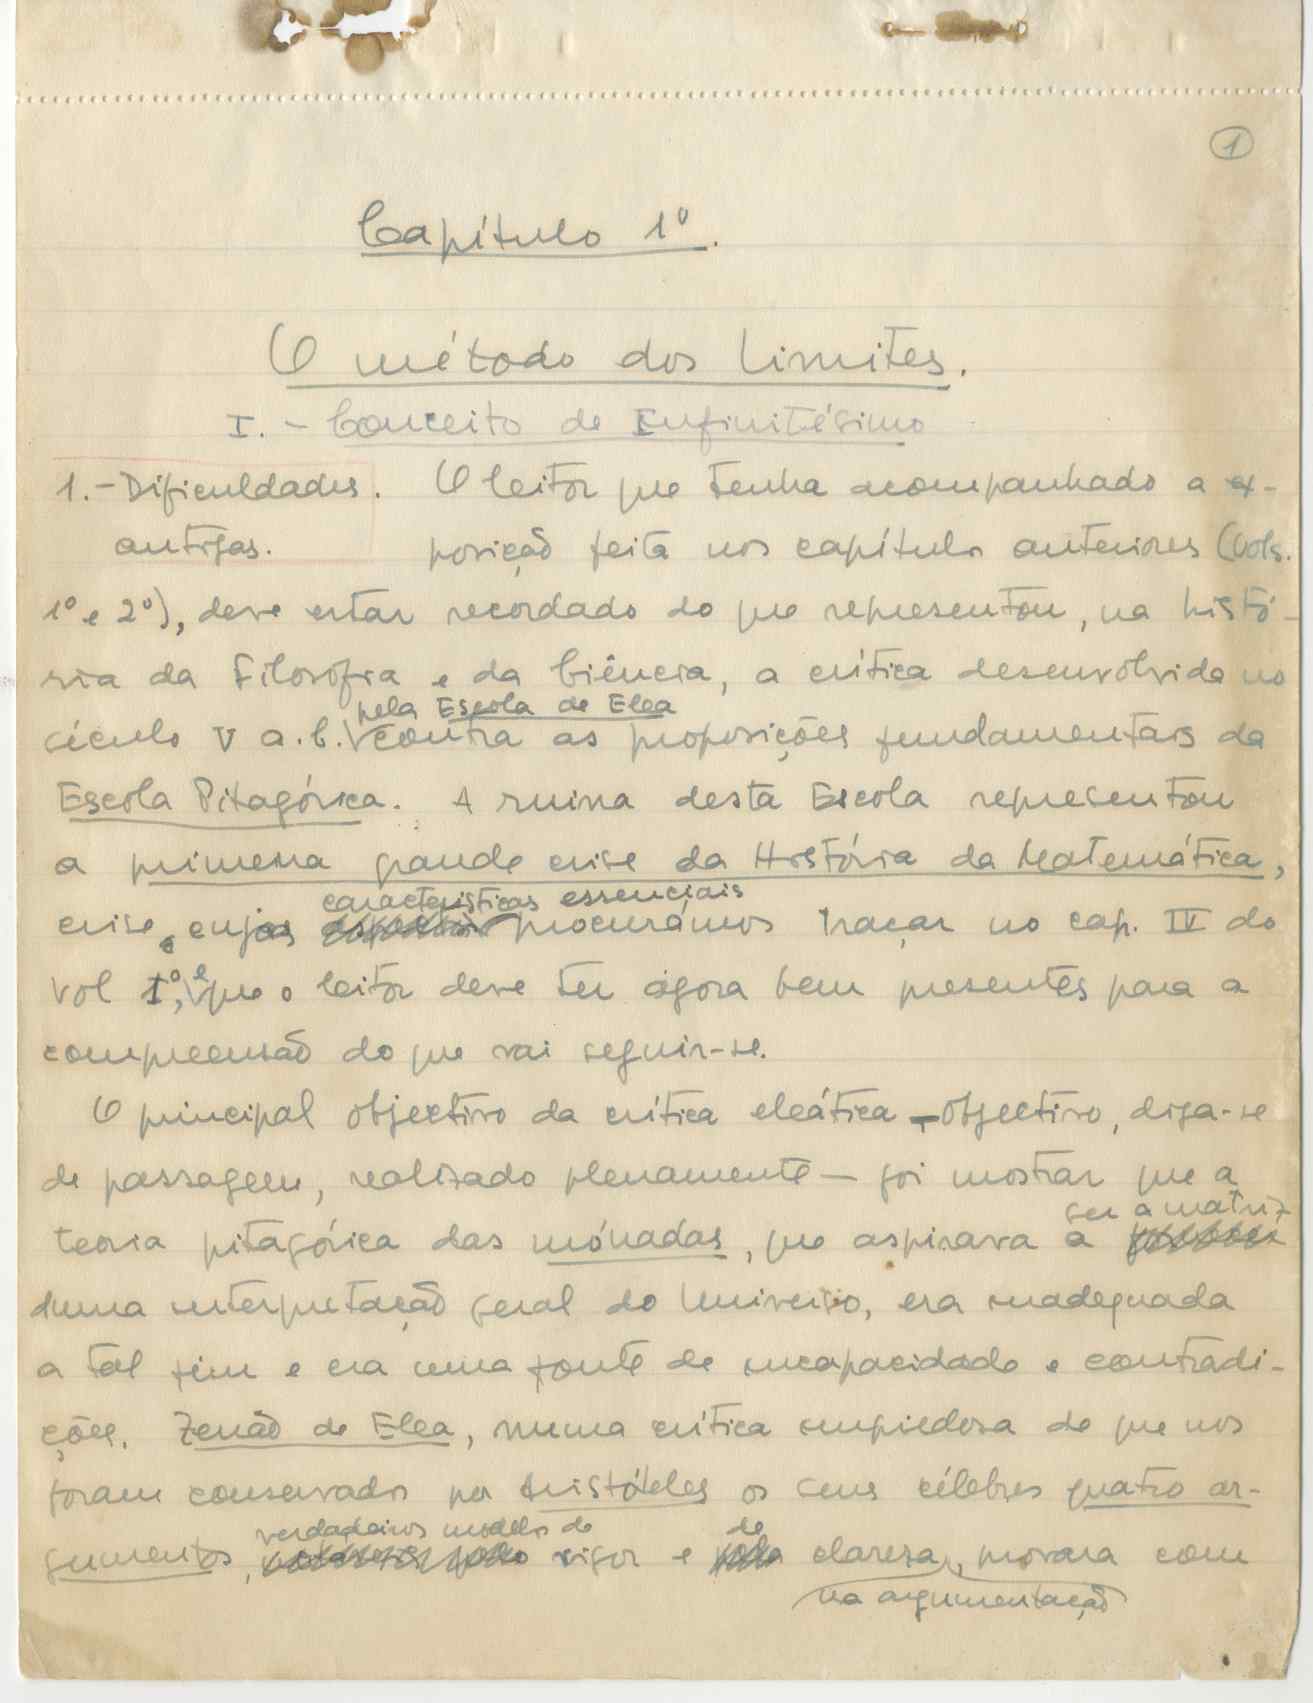 1
Capítulo 1º.
O método dos limites.
I. - Conceito de Infinitésimo
1.- Dificuldades. O leitor que tenha acompanhado a ex-
antigas. posição feita nos capítulos anteriores (Vols.
1º e 2º), deve estar recordado do que representou, na histó-
ria da Filosofia e da Ciência, a crítica desenvolvida no
pela Escola de Elea
século V a.C. contra as proposições fundamentais da
Escola Pitagórica. A ruina desta Escola representou
a primeira grande crise da História da Matemática,
características essenciais
crise cujas procurámos traçar no cap. IV do
vol 1º, e que o leitor deve ter agora bem presentes para a
compreensão do que vai seguir-se.
O principal objectivo da crítica eleática - objectivo, diga-se
de passagem, realizado plenamente — foi mostrar que a
teoria pitagórica das mónadas, que aspirava a
ser a matriz
duma interpretação geral do Universo, era inadequada
a tal fim e era uma fonte de incapacidade e contradi-
ções. Zenão de Elea, numa crítica impiedosa de que nos
foram conservados por Aristóteles os seus célebres quatro ar-
verdadeiros modelos de de
gumentos, rigor e clareza, provara com
na argumentação